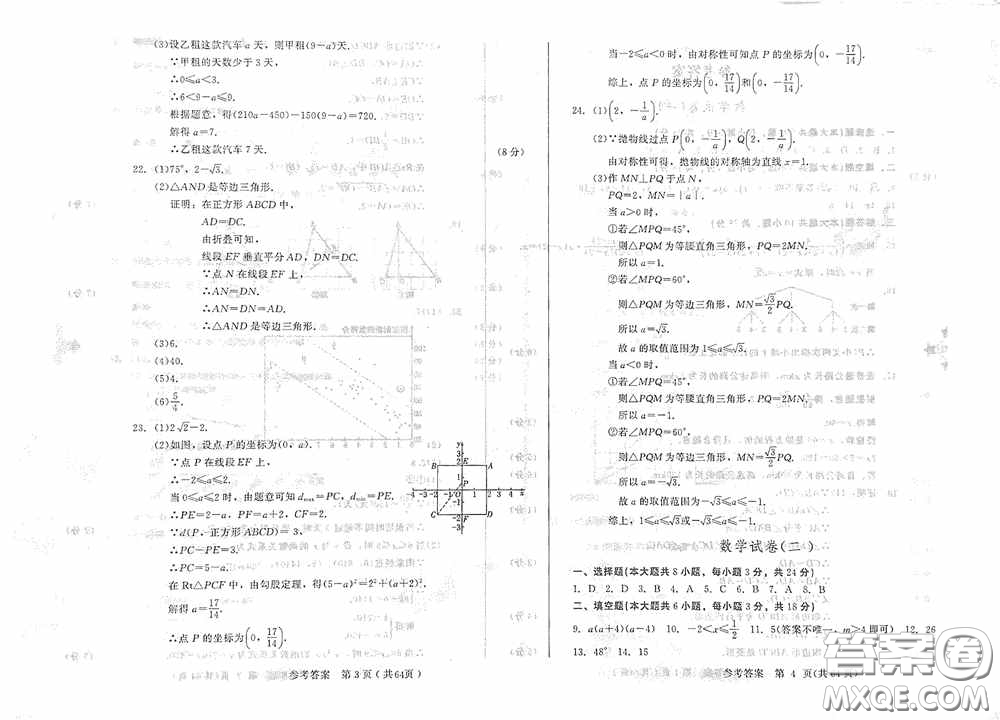 (3)设乙租这款汽车 a 天，则甲租(9－a)天.
∵甲租的天数少于 3 天，
∴0≤a＜3.
∴6＜9－a≤9.
根据题意，得(210a－450)－150(9－a)＝720.
解得 a＝7.
∴乙租这款汽车 7 天.
(8 分)
22. (1)75°，2－√3.
(2)△AND 是等边三角形.
证明：在正方形 ABCD 中，
AD＝DC.
由折叠可知，
线段 EF 垂直平分 AD，DN＝DC.
∵点 N 在线段 EF 上，
∴AN＝DN.
∴AN＝DN＝AD.
∴△AND 是等边三角形.
(3)6.
(4)40.
(5)4.
(6)5/4.
23. (1)2√2－2.
(2)如图，设点 P 的坐标为(0，a).
∵点 P 在线段 EF 上，
∴－2≤a≤2.
当 0≤a≤2 时，由题意可知 dmax＝PC，dmin＝PE.
∴PE＝2－a，PF＝a＋2，CF＝2.
∵d(P，正方形 ABCD)＝3，
∴PC－PE＝3.
∴PC＝5－a.
在 Rt△PCF 中，由勾股定理，得(5－a)²＝2²＋(a＋2)².
解得 a＝17/14.
∴点 P 的坐标为(0，17/14).
参考答案 第 3 页（共64页）
当－2≤a＜0 时，由对称性可知点 P 的坐标为(0，－17/14).
综上，点 P 的坐标为(0，17/14)和(0，－17/14).
24. (1)(2，－1/a).
(2)∵抛物线过点 P(0，－1/a)，Q(2，－1/a)，
由对称性可得，抛物线的对称轴为直线 x＝1.
(3)作 MN⊥PQ 于点 N，
PQ＝2，MN＝|a|.
当 a＞0 时，
①若∠MPQ＝45°，
则△PQM 为等腰直角三角形，PQ＝2MN.
所以 a＝1.
②若∠MPQ＝60°，
则△PQM 为等边三角形，MN＝√3/2PQ.
所以 a＝√3.
故 a 的取值范围为 1≤a≤√3.
当 a＜0 时，
①若∠MPQ＝45°，
则△PQM 为等腰直角三角形，PQ＝2MN.
所以 a＝－1.
②若∠MPQ＝60°，
则△PQM 为等边三角形，MN＝√3/2PQ.
所以 a＝－√3.
故 a 的取值范围为－√3≤a≤－1.
综上，1≤a≤√3或－√3≤a≤－1.
数学试卷(二)
一、选择题(本大题共 8 小题，每小题 3 分，共 24 分)
1. D 2. D 3. D 4. A 5. C 6. B 7. A 8. B
二、填空题(本大题共 6 小题，每小题 3 分，共 18 分)
9. a(a＋4)(a－4) 10. －2＜x≤1/2 11. 5(答案不唯一，m≥4 即可) 12. 26
13. 48° 14. 15
参考答案 第 4 页(共64页)
答案圈
MXQE.COM